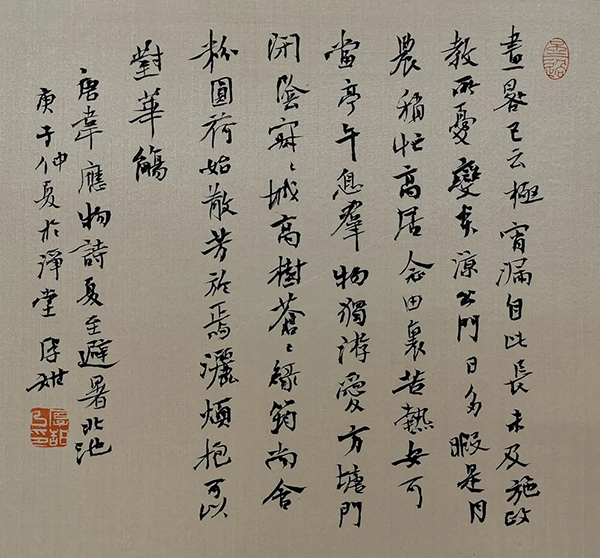 晝晷已云極宵漏自此長未及施政
教所憂變炎涼公門日多暇是月
農稍忙高居念田裏苦熱安可
當亭午息羣物獨游愛方塘門
閉陰寂〻城高樹蒼〻綠筠尚含
粉圓荷始散芳於焉灑煩抱可以
對華觴
唐韋應物詩夏至避暑北池
庚子仲夏於淨堂